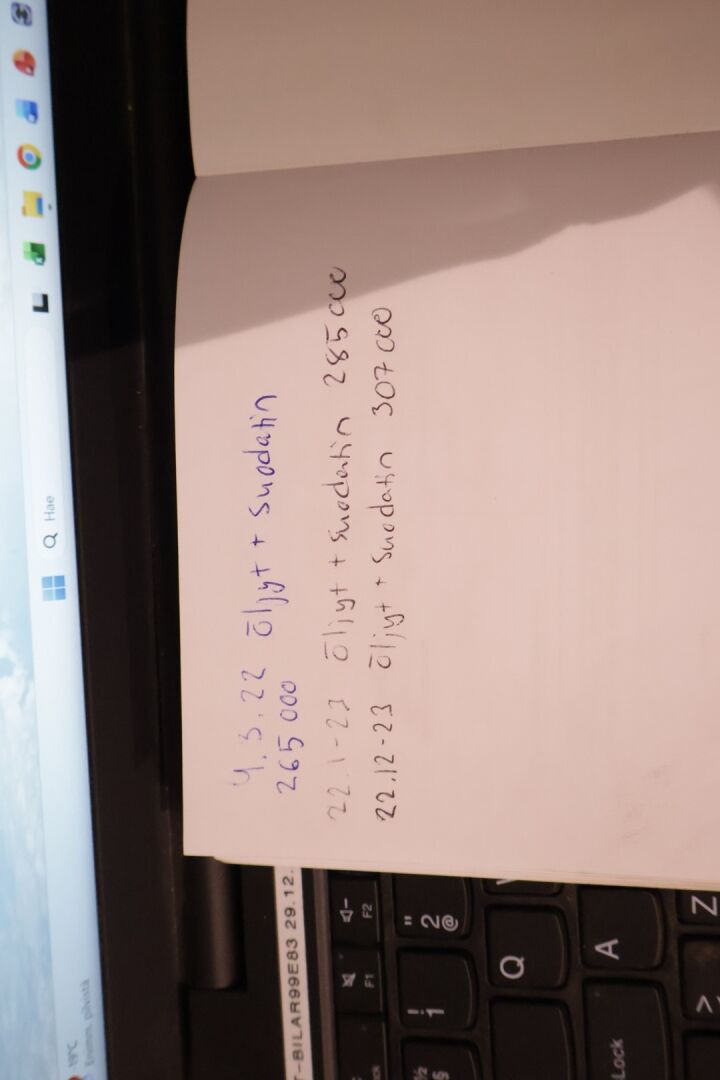 4.3.22 Öljyt + Suodatin
265 000
22.1-23 Öljyt + Suodatin 285 000
22.12-23 Öljyt + Suodatin 307 000
T-BILAR99E83 29.12.
Hae
19°C
Enimm. pilvistä
F1
F2
! 1
" 2 @
½ §
Q
A
Z
>
Lock